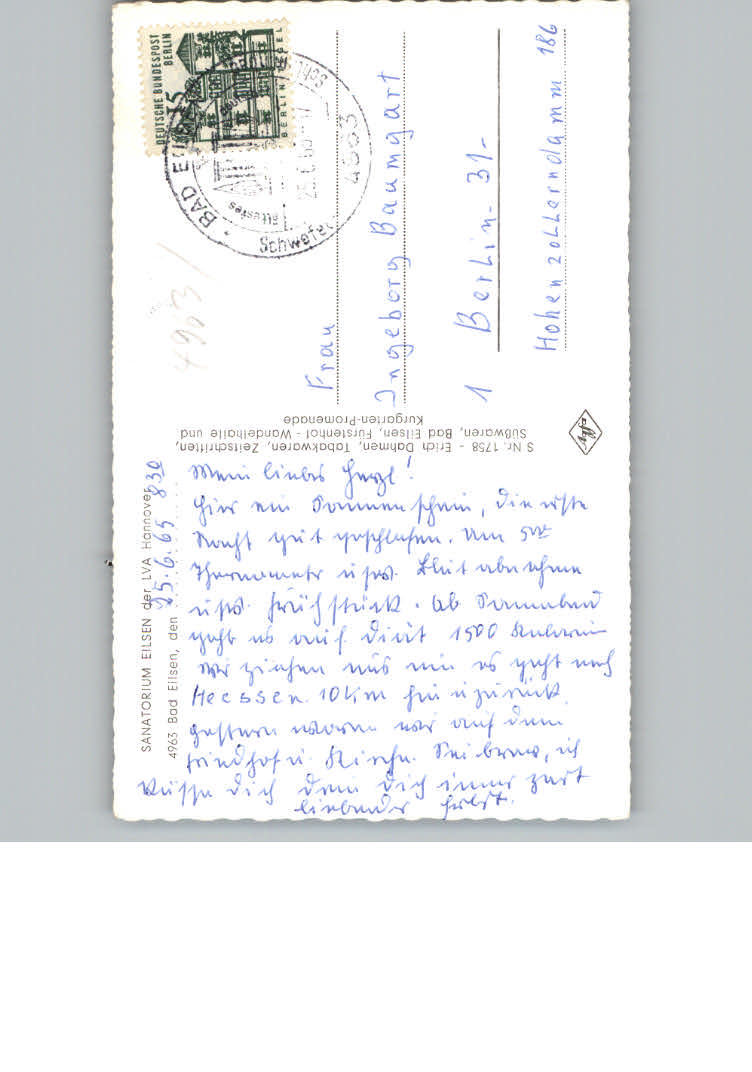 SANATORIUM EILSEN der LVA Hannover
4963 Bad Eilsen, den 25.6.65 8³⁰
Mein liebes Herzl!
Hier ein Sonnenschein, die erste
Nacht gut geschlafen. Um 5⁰⁰
Thermometer usw. Blut abnehmen
usw. Frühstück. Ab Sonnabend
geht es auf Diät 1500 Kalorien
wir ziehen uns um es geht nach
Heessen. 10 km hin u zurück
gestern waren wir auf dem
Friedhof u. Kirche. Sei brav, ich
küsse dich dein dich immer zart
liebender
S Nr. 1758 - Erich Dahmen, Tabakwaren, Zeitschriften,
Süßwaren, Bad Eilsen, Fürstenhof - Wandelhalle und
Kurgarten-Promenade
DEUTSCHE BUNDESPOST
BERLIN
15
BERLIN TEGEL
BAD
Schwefel
ältestes
4963
4963
Frau
Ingeborg Baumgart
1 Berlin-31-
Hohenzollerndamm 186